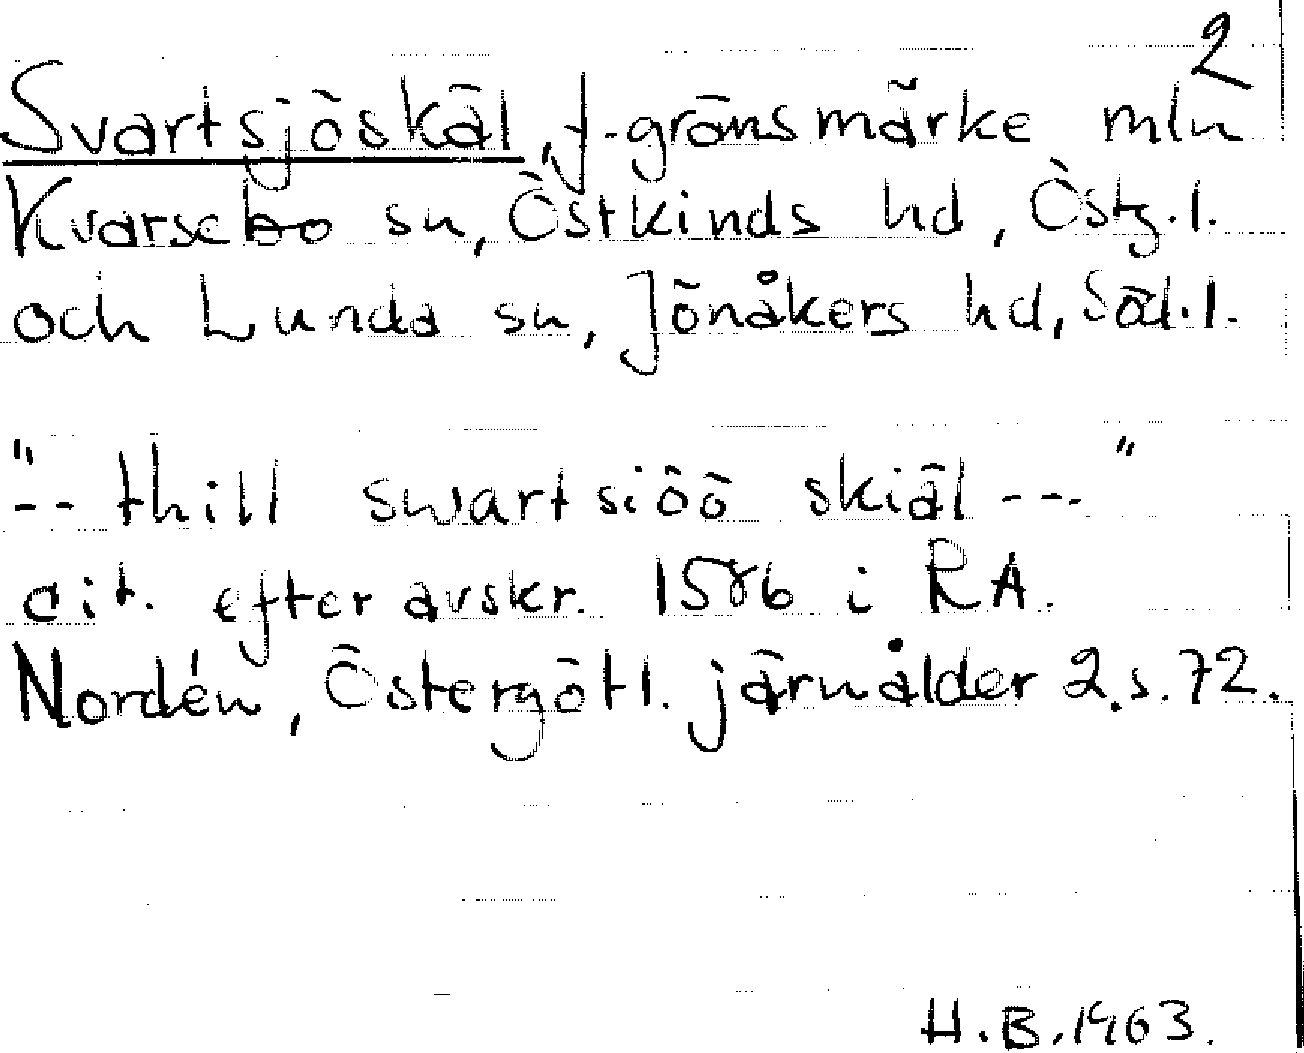 2
Svartsjöskäl, f. gränsmärke mln
Kvarsebo sn, Östkinds hd, Östg.l.
och Lunda sn, Jönåkers hd, Söd.l.
"-- thill swart siöö skiäl ---"
cit. efter avskr. 1586 i RA.
Nordén, Östergötl. järnålder 2.s.72.
H.B.1963.